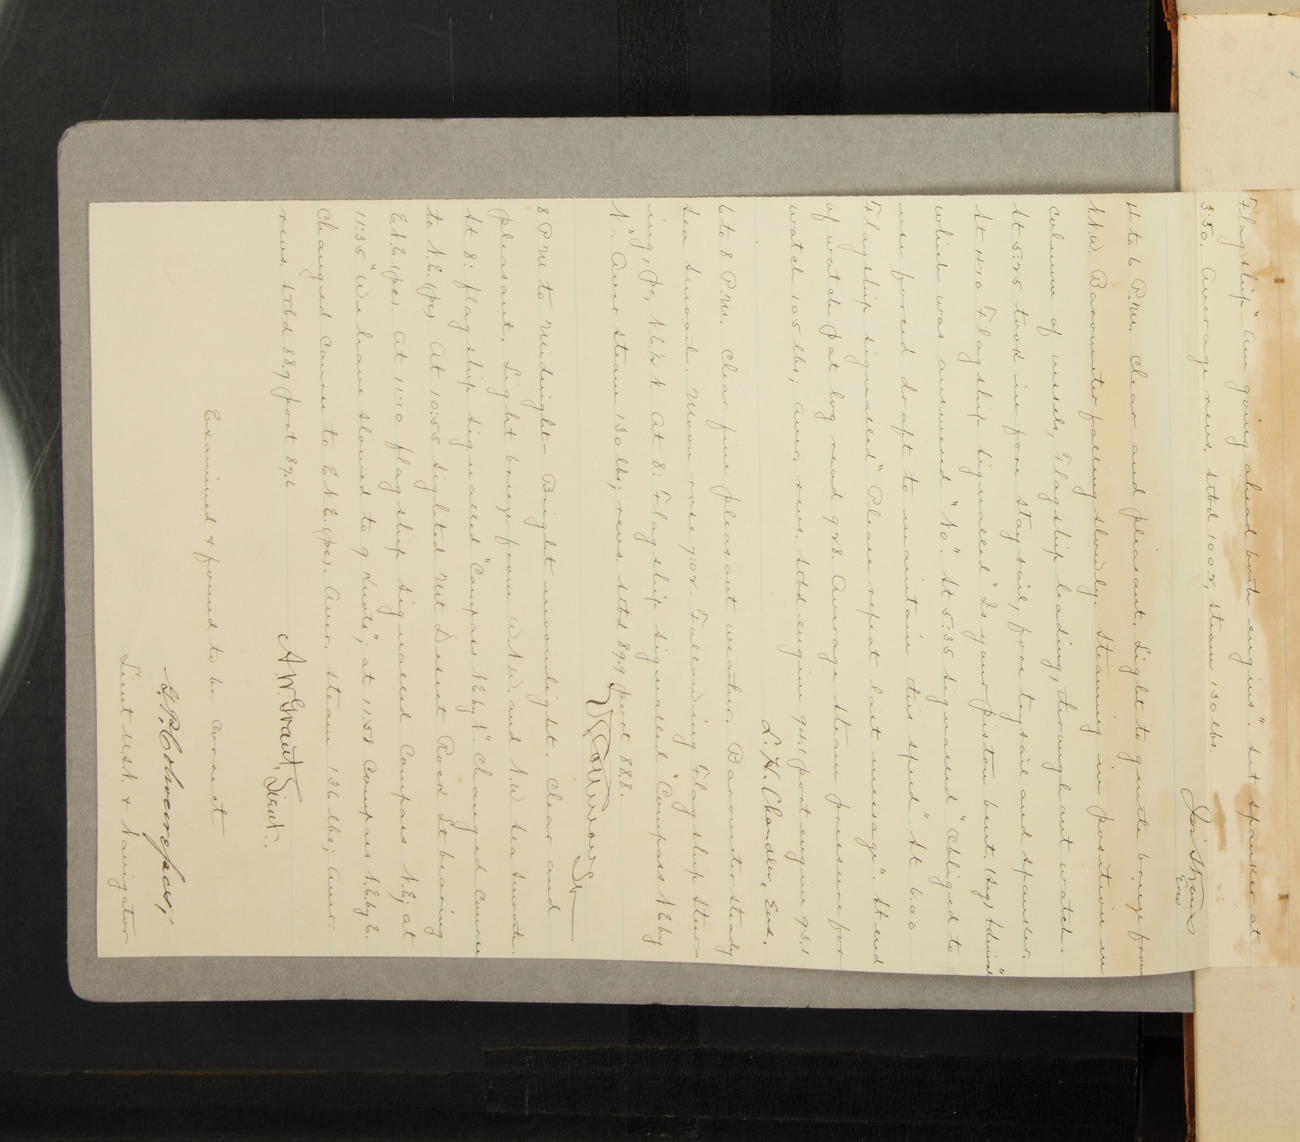 Flagship "Am going ahead both engines". Set spanker at
3:50. Average revs. stbd 100.2, steam 130 lbs.
Ens
4 to 6 P.M. Clear and pleasant. Light to gentle breeze from
N.N.W. Barometer falling slowly. Steaming in position in
column of vessels, Flagship leading, throughout watch.
At 5:25 took in fore stay sail, fore trysail and spanker.
At 4:10 Flagship signalled "Is your piston bent (Sig) Admiral"
which was answered "No". At 5:35 signalled "Obliged to
use forced draft to maintain this speed". At 6.00
Flagship signalled "Please repeat last message". At end
of watch pat log read 92.8. Average steam pressure for
watch 105 lbs; aver. revs. stbd engine 92.1 port engine 93.1
L. H. Chandler, Ens.
6 to 8 P.M. Clear fine pleasant weather. Barometer steady
Sea smooth. Moon rose 7:02. Following Flagship steer-
ing, (pc) N.E. by N. At 8: Flagship signalled "Compass N.E. by
N". Aver steam 130 lbs; revs. stbd 89.9 port 88.8.
8 P.M. to Midnight – Bright moonlight. Clear and
pleasant. Light breeze from W.N.W. and N.W. Sea smooth.
At 8: flagship signalled "Compass N.E. by N". Changed course
to N.E. (pc) At 10:55 sighted Mt Desert Rock Lt bearing
E.N.E. (pc). At 11:10 flagship signalled Compass N.E., at
11:35 "We have slowed to 9 Knots"; at 11:58 Compass N.E. by E.
Changed course to E.N.E. (pc). Aver. steam 136 lbs; aver.
revs. stbd 88.9 port 89.6
A. W. Grant, Lieut.
Examined & found to be correct
Lieut. U.S.N. & Navigator